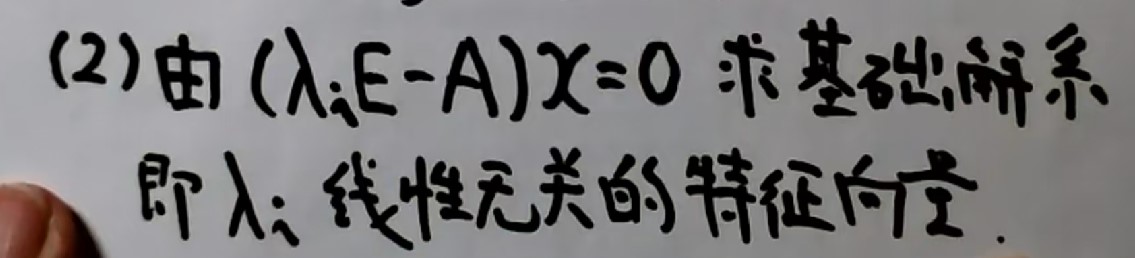 (2)由(λᵢE-A)x=0 求基础解系
即λᵢ线性无关的特征向量.